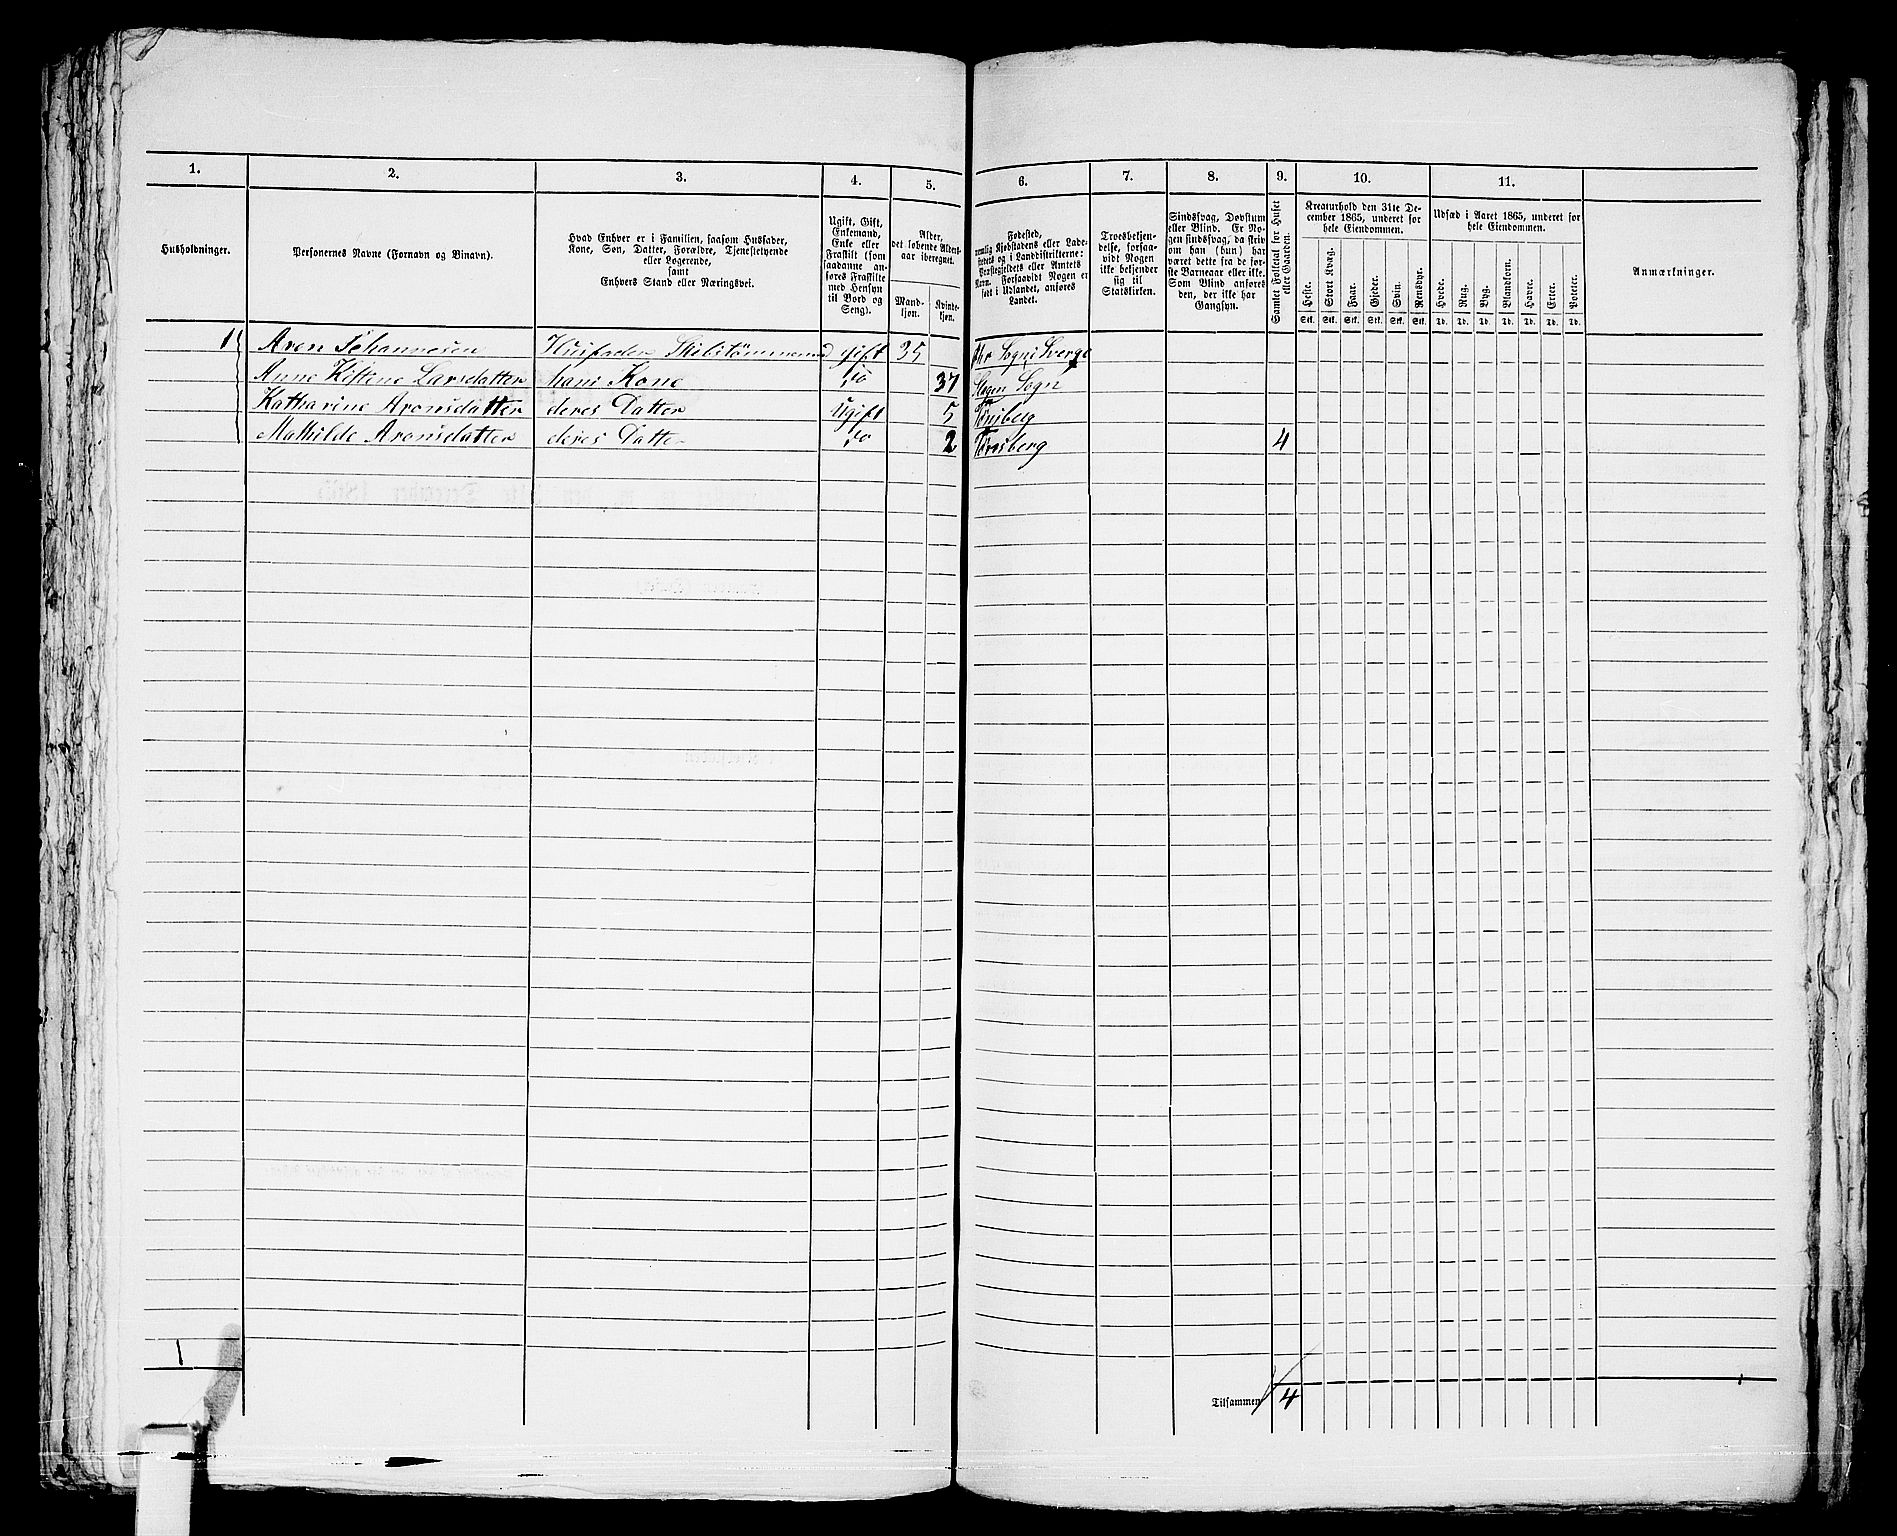 1. 2. 3. 4. 5. 6. 7. 8. 9. 10. 11.
Husholdninger.
Personernes Navne (Fornavn og Binavn).
Hvad Enhver er i Familien, saasom Husfader,
Kone, Søn, Datter, Forældre, Tjenestetyende
eller Logerende,
samt
Enhvers Stand eller Næringsvei.
Ugift, Gift,
Enkemand,
Enke eller
Fraskilt (som
saadanne an-
føres Fraskilte
med Hensyn
til Bord og
Seng).
Alder,
det løbende Alders-
aar iberegnet.
Mand-
kjøn.
Kvinde-
kjøn.
Fødested,
nemlig Kjøbstadens eller Lade-
stedets og i Landdistrikterne:
Præstegjeldets eller Amtets
Navn. Forsaavidt Nogen er
født i Udlandet, anføres
Landet.
Troesbekjen-
delse, forsaa-
vidt Nogen
ikke bekjender
sig til
Statskirken.
Sindssvag, Døvstum
eller Blind. Er No-
gen sindssvag, da skriv
om han (hun) har
været dette fra de før-
ste Barneaar eller ikke.
Som Blind anføres
den, der ikke har
Gangsyn.
Samlet Folketal for Huset
eller Gaarden.
Kreaturhold den 31te De-
cember 1865, underet for
hele Eiendommen.
Heste. Stort Kvæg. Faar. Gjeder. Svin. Rensdyr.
Stk. Stk. Stk. Stk. Stk. Stk.
Udsæd i Aaret 1865, underet for
hele Eiendommen.
Hvede. Rug. Byg. Blandkorn. Havre. Erter. Poteter.
Td. Td. Td. Td. Td. Td. Td.
Anmærkninger.
1 Aron Johannesen Husfader gift 35 Sogn i Sverge
Anne Kistene Larsdatter hans Kone do 37 Slagen Sogn
Katharine Aronsdatter deres Datter Ugift 5 Tønsberg
Mathilde Aronsdatter deres Datter do 2 Tønsberg 4
1
Tilsammen 4